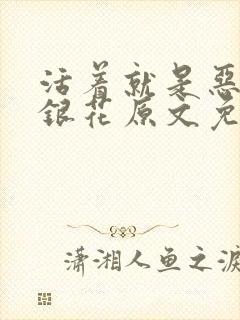 活着就是恶
銀花原文免
瀟湘人鱼之泪